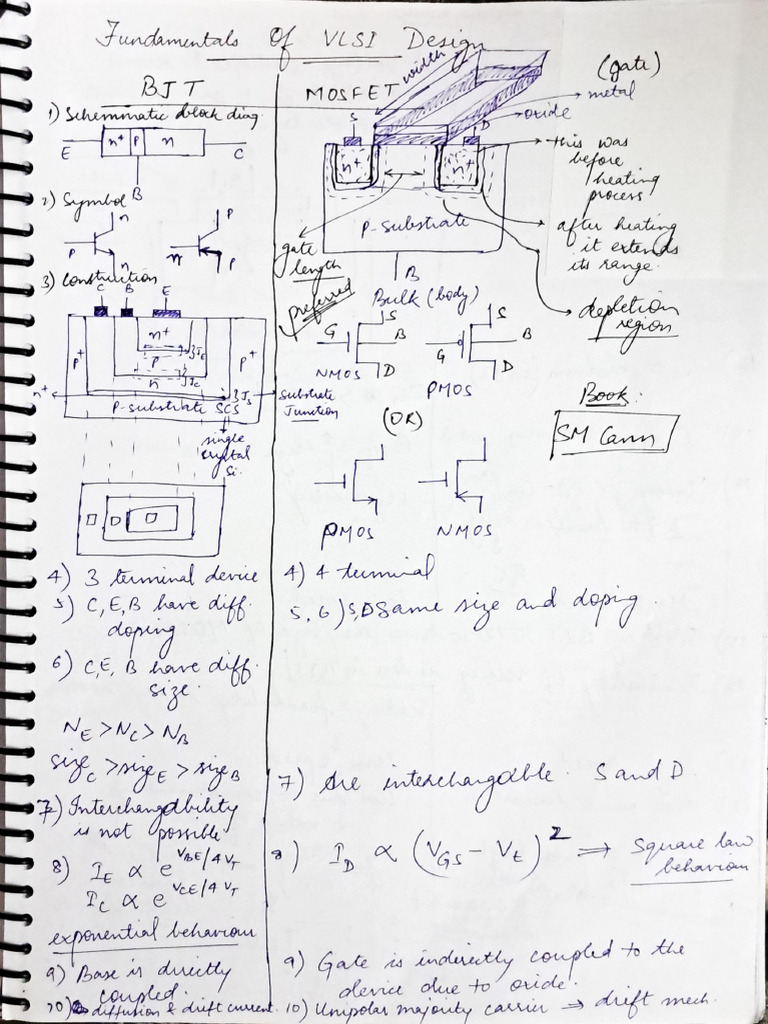 Fundamentals Of VLSI Design
BJT
1) Schemmatic block diag.
E
n+ P n
C
B
2) Symbol
n
P
n
P
n
P
3) Construction
C B E
n+
P
n
JE
JC
P+
P+
n+
P-substrate SCS
JS
Substrate
Junction
single
crystal
Si.
4) 3 terminal device
5) C, E, B have diff.
doping
6) C, E, B have diff.
size.
NE > NC > NB
sizeC > sizeE > sizeB
7) Interchangability
is not possible
8) IE ∝ e^VBE/4VT
IC ∝ e^VCE/4VT
exponential behaviour
9) Base is directly
coupled.
10) diffusion & drift current.
MOSFET
width
(gate)
metal
oxide
S
D
n+
n+
this was
before
heating
process
P-substrate
after heating
it extends
its range.
gate
length
B
Bulk (body)
depletion
region
preferred
G
S
B
D
NMOS
G
S
B
D
PMOS
(OR)
PMOS
NMOS
Book:
SM
4) 4 terminal
5, 6) S, D Same size and doping.
7) Are interchangable. S and D
8) ID ∝ (VGS - Vt)^2 ⇒ Square law
behaviour
9) Gate is indirectly coupled to the
device due to oxide.
10) Unipolar majority carrier → drift mech.